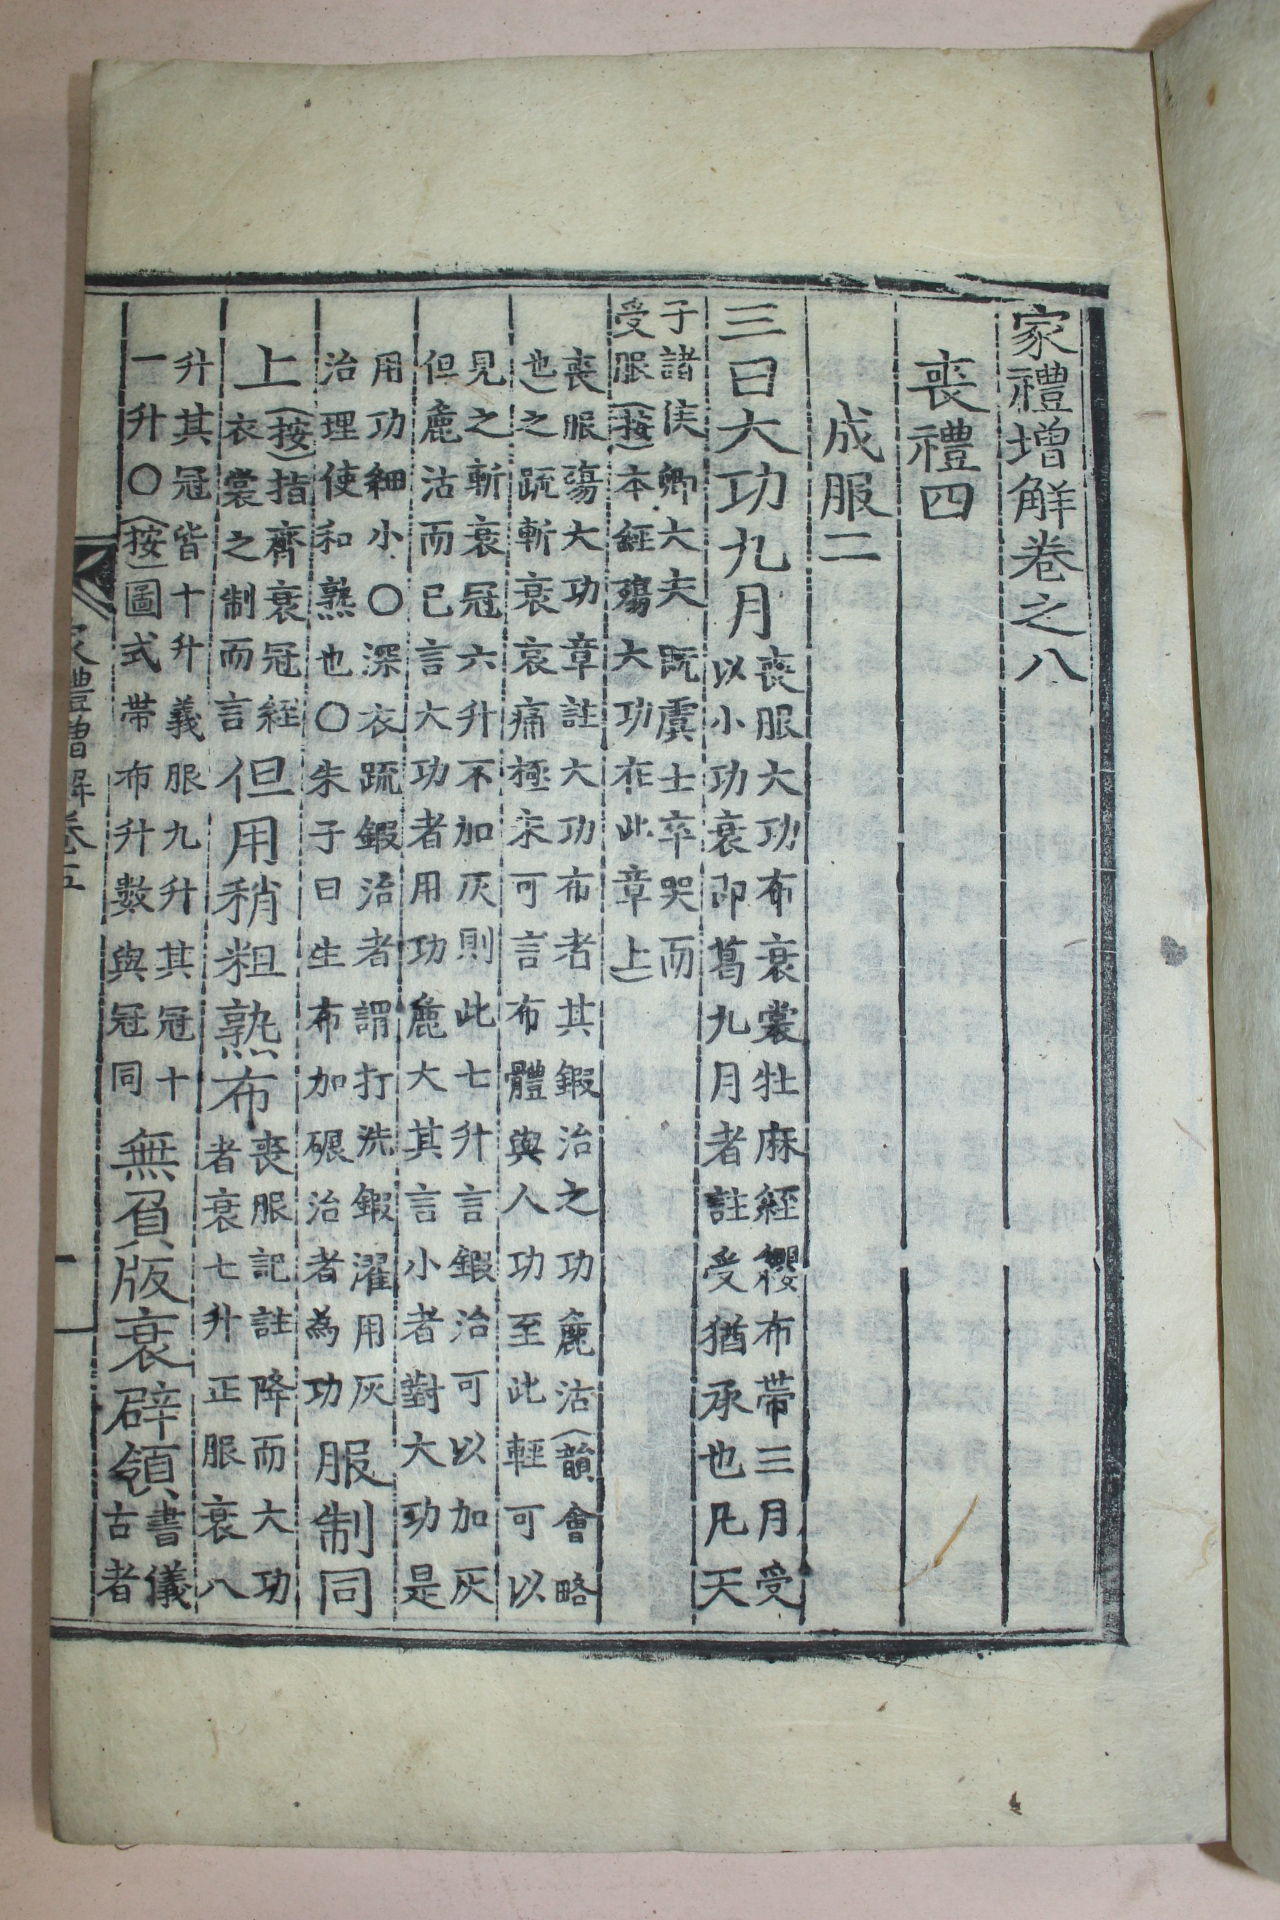 家禮增解卷之八
喪禮四
成服二
三曰大功九月
喪服大功布衰裳牡麻絰纓布帶三月受
以小功衰卽葛九月者註受猶承也凡天
子諸侯卿大夫旣虞士卒哭而
受服(按)本經殤大功在此章上)
喪服殤大功章註大功布者其鍜治之功麄沽(韻會略
也)之疏斬衰哀痛極未可言布體與人功至此輕可以
見之斬衰冠六升不加灰則此七升言鍜治可以加灰
但麄沽而已言大功者用功麄大其言小者對大功是
用功細小○深衣疏鍜治者謂打洗鍜濯用灰
治理使和熟也○朱子曰生布加碾治者為功
服制同
上
(按)指齊衰冠絰
衣裳之制而言
但用稍粗熟布
喪服記註降而大功
者衰七升正服衰八
升其冠皆十升義服九升其冠十
一升○(按)圖式帶布升數與冠同
無負版衰辟領
書儀
古者
家禮增解卷五
一